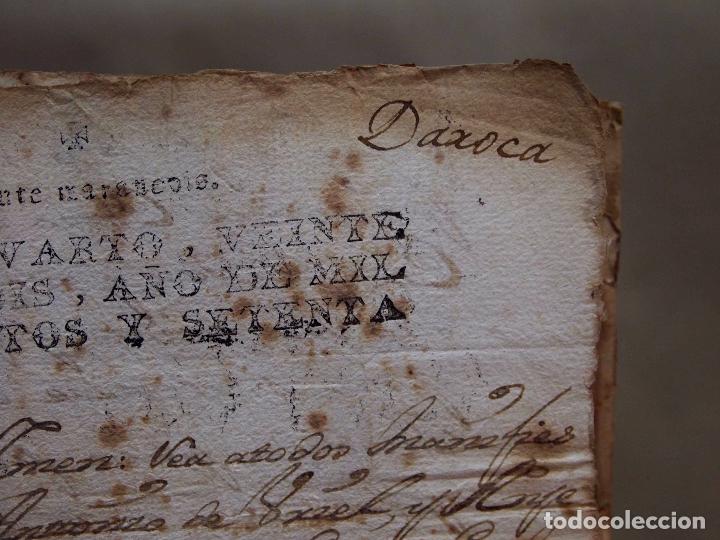 Daroca
nte maravedis.
VARTO, VEINTE
DIS, AÑO DE MIL
TOS Y SETENTA
Amen: Vea atodos Manifies
Antonio de
todocoleccion